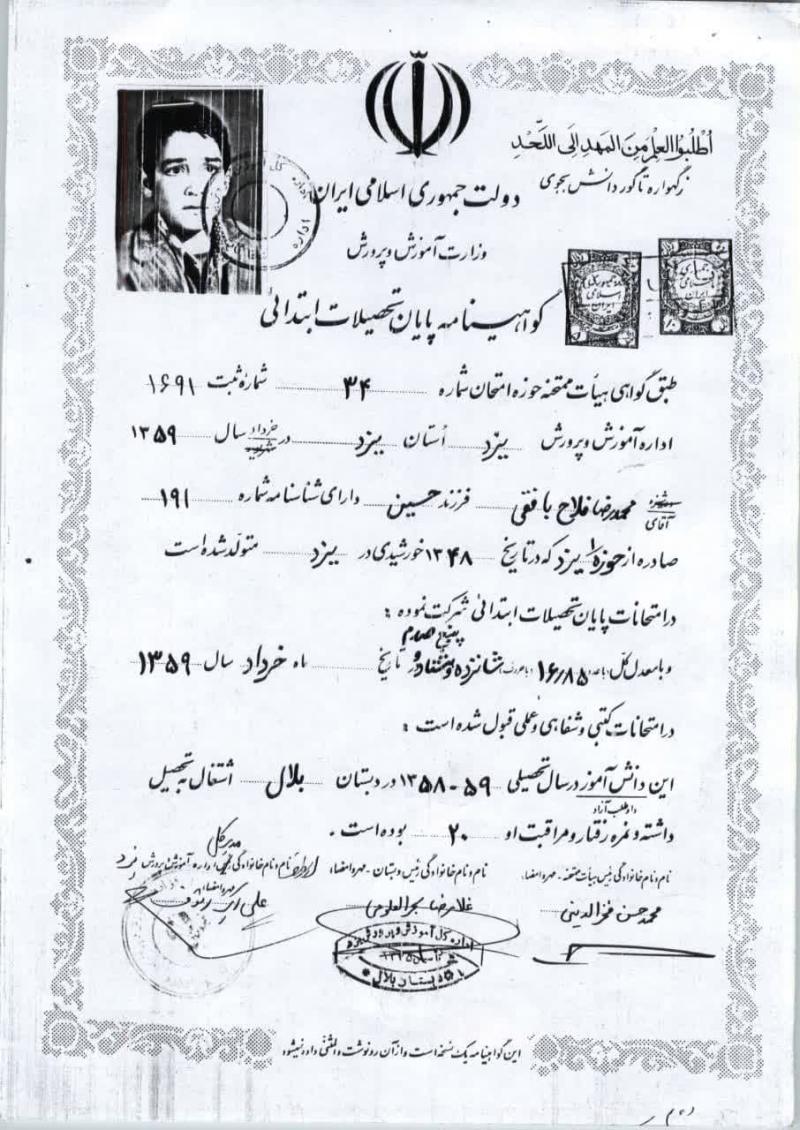 اُطْلُبُوا الْعِلْمَ مِنَ الْمَهْدِ إِلَى اللَّحْدِ
زگهواره تا گور دانش بجوی
دولت جمهوری اسلامی ایران
وزارت آموزش و پرورش
گواهینامه پایان تحصیلات ابتدائی
طبق گواهی هیأت ممتحنه حوزه امتحان شماره ۳۴ شمارهٔ ثبت ۱۶۹۱
اداره آموزش و پرورش یزد استان یزد در خرداد سال ۱۳۵۹
آقای محمدرضا فلاح بافقی فرزند حسین دارای شناسنامه شماره ۱۹۱
صادره از حوزه ۱ یزد که در تاریخ ۱۳۴۸ خورشیدی در یزد متولد شده است
در امتحانات پایان تحصیلات ابتدائی شرکت نموده :
و با معدل کل ۱۶/۸۵ شانزده و هشتاد و پنج صدم تاریخ ماه خرداد سال ۱۳۵۹
در امتحانات کتبی و شفاهی و عملی قبول شده است :
این دانش آموز در سال تحصیلی ۵۹-۱۳۵۸ در دبستان بلال اشتغال به تحصیل
داوطلب آزاد
داشته و نمره رفتار و مراقبت او ۲۰ بوده است .
مدیر کل
نام و نام خانوادگی رئیس هیأت ممتحنه - مهر و امضاء نام و نام خانوادگی رئیس دبستان - مهر و امضاء نام و نام خانوادگی اداره آموزش و پرورش یزد
مهر و امضاء
محمد حسن فخرالدینی غلامرضا بحرالعلومی علی اکبر
اداره کل آموزش و پرورش یزد
دبستان بلال
این گواهینامه یک نسخه است و از آن رونوشت و المثنی داده نمیشود